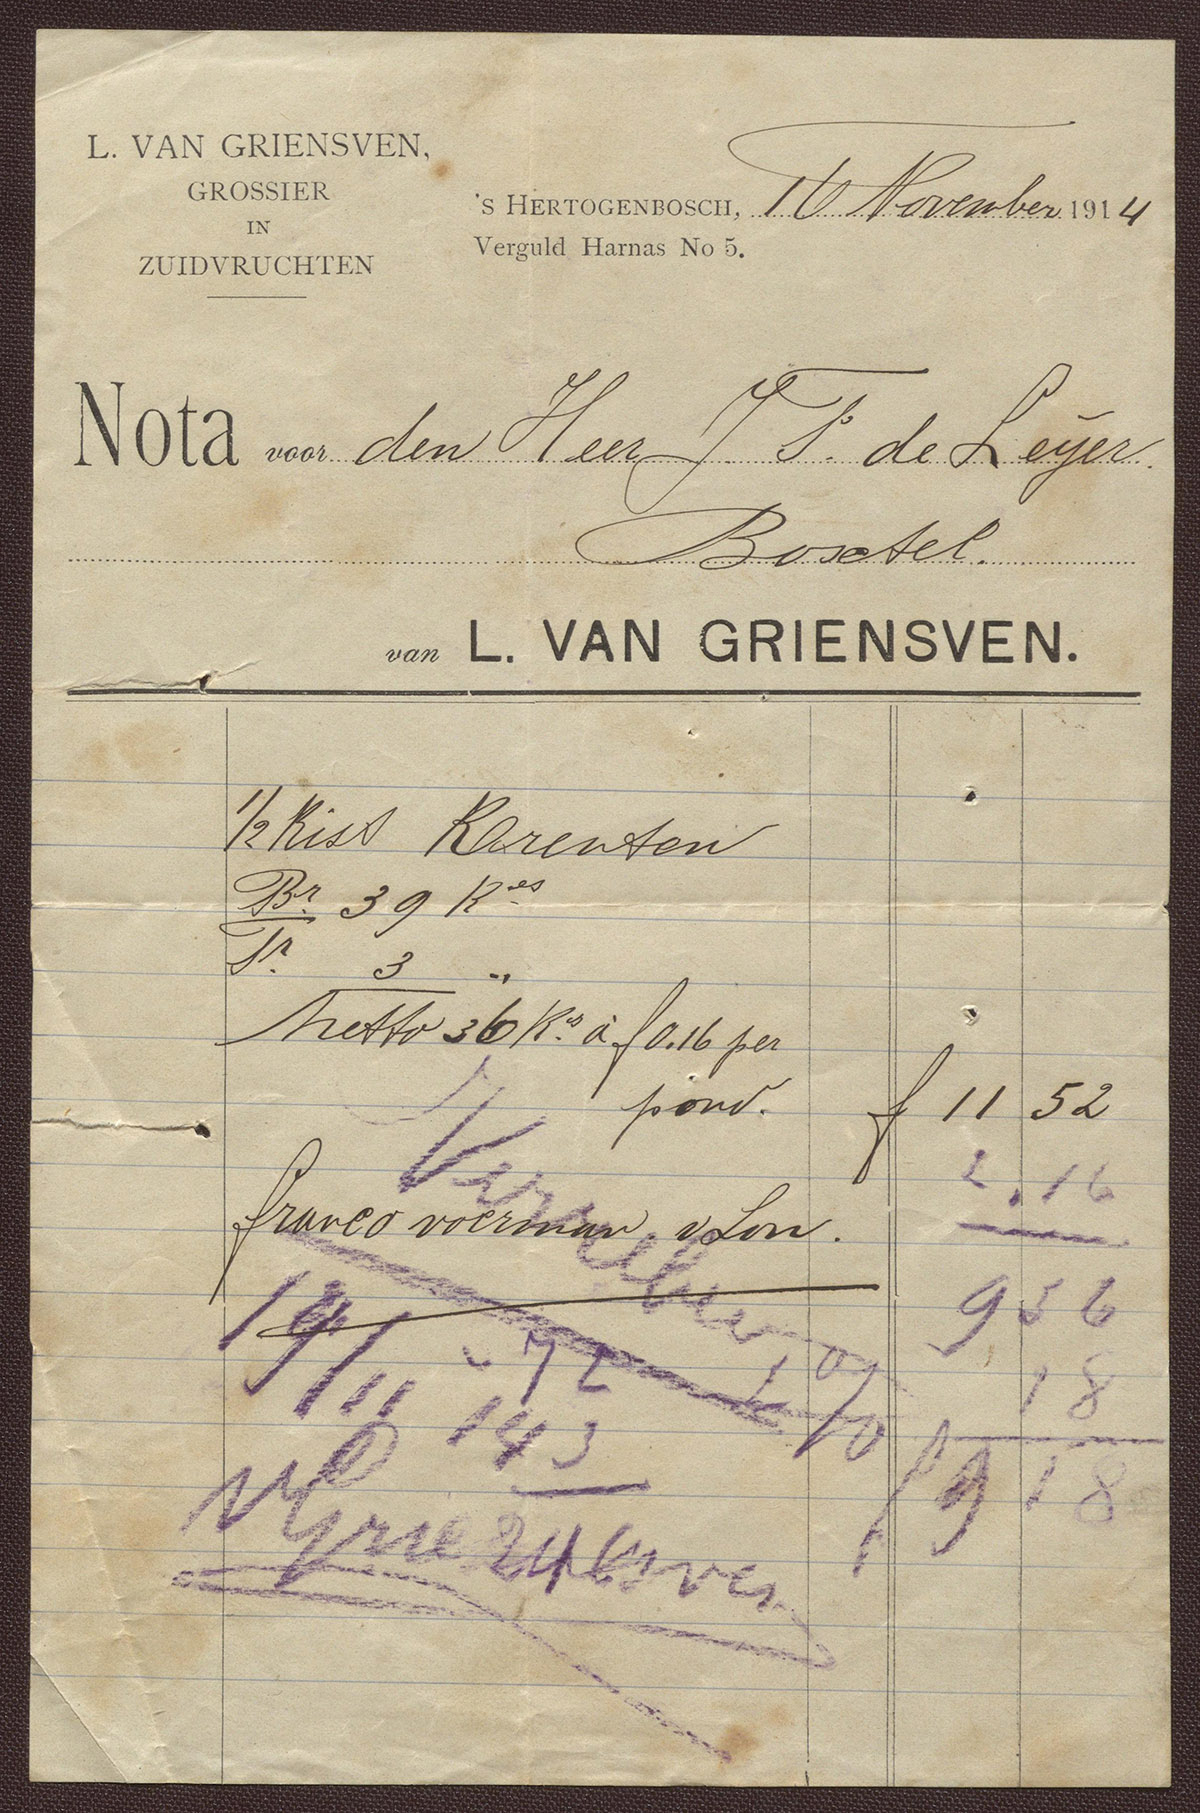 L. VAN GRIENSVEN,
GROSSIER
IN
ZUIDVRUCHTEN
'S HERTOGENBOSCH, 16 November 1914
Verguld Harnas No 5.
Nota voor den Heer J. P. de Leijer.
Boxtel.
van L. VAN GRIENSVEN.
1/2 Kist Krenten
Br. 39 K.os
Tr. 3 "
Netto 36 K.os à f 0.16 per
pond. f 11 52
2.16
franco voerman v Lon.
9 56
19/11 72 1 %
18
143
f 9 18
v Griensven
246